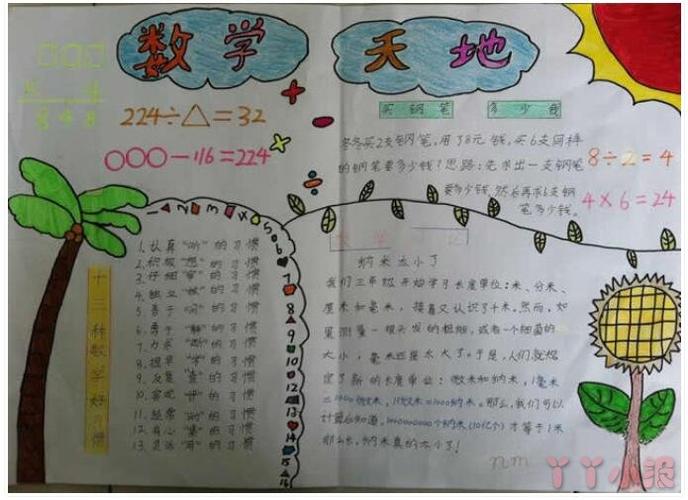 数学天地
□□□
5 4
8 4 8
224÷△=32
○○○-116=224
买钢笔 多少钱
冬冬买2支钢笔,用了8元钱,买6支同样
的钢笔要多少钱?思路:先求出一支钢笔
要多少钱,然后再求6支钢
笔多少钱。
8÷2=4
4×6=24
1 2 3 4 5 6 7 8 9 10 11 12 13 14 15 16
十三种数学好习惯
1.认真"听"的习惯
2.积极"想"的习惯
3.仔细"审"的习惯
4.独立"做"的习惯
5.善于"问"的习惯
6.勇于"辩"的习惯
7.力求"断"的习惯
8.提早"学"的习惯
9.反复"查"的习惯
10.客观"评"的习惯
11.经常"动"的习惯
12.有心"集"的习惯
13.灵活"用"的习惯
数学 记
纳米太小了
我们三年级开始学习长度单位:米、分米、
厘米和毫米,接着又认识了千米。然而,如
果测量一根头发的粗细,或者一个细菌的
大小,毫米还是太大了。于是,人们就规
定了新的长度单位:微米和纳米,1毫米
=1000微米,1微米=1000纳米。那么,我们可以
计算后知道,1000000000个纳米(10亿个)才等于1米
那么长,纳米真的太小了!
nm
丫丫小报